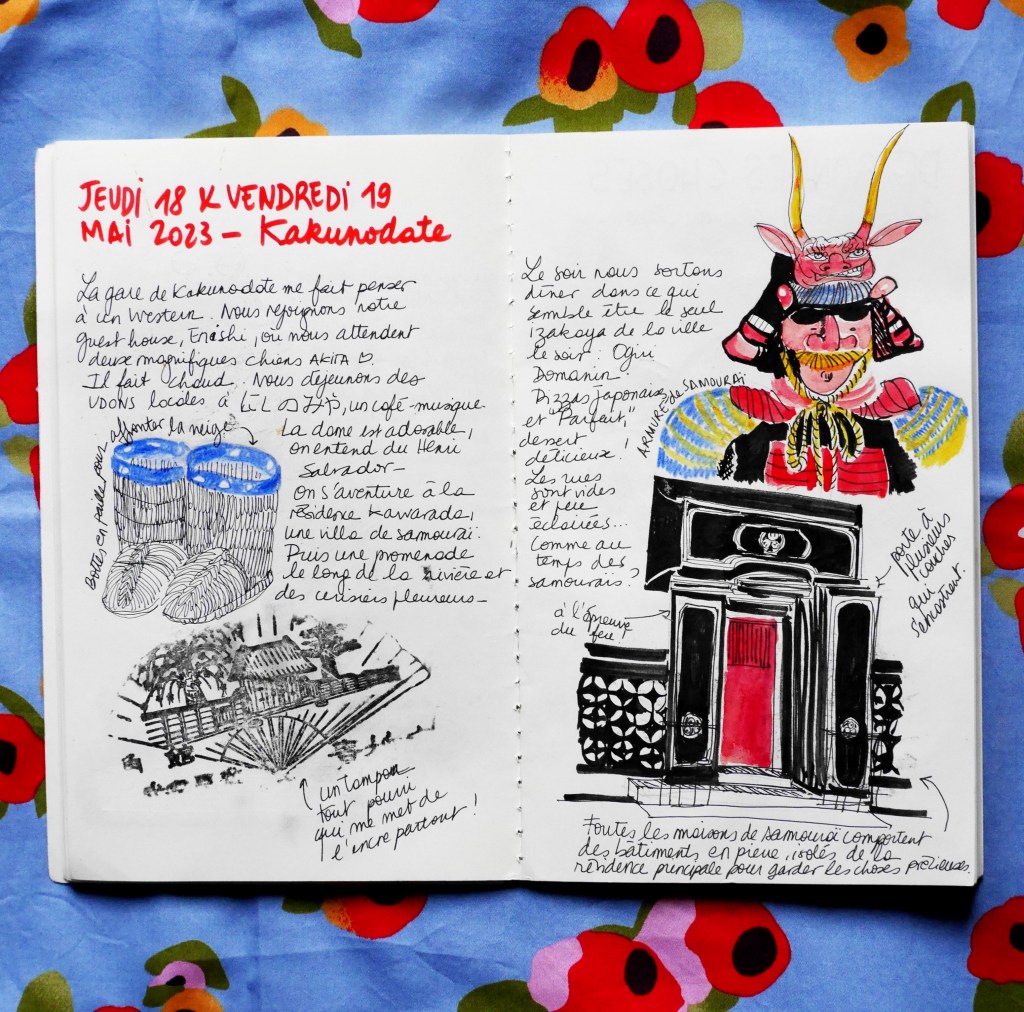 JEUDI 18 & VENDREDI 19
MAI 2023 – Kakunodate
La gare de Kakunodate me fait penser
à un Western. Nous rejoignons notre
guest house, Enishi, où nous attendent
deux magnifiques chiens AKITA ♡
Il fait chaud. Nous déjeunons des
UDONS locales à にしのみや, un café-musique
La dame est adorable,
on entend du Henri
Salvador –
On s'aventure à la
résidence Kawarada,
une villa de samouraï.
Puis une promenade
le long de la rivière et
des cerisiers pleureurs –
Bottes en paille pour affronter la neige
↑ un tampon
tout pourri
qui me met de
l'encre partout !
Le soir nous sortons
dîner dans ce qui
semble être le seul
izakaya de la ville
le soir : Ogui
Domanin.
Pizzas japonaises
et "Parfait",
dessert
délicieux !
Les rues
sont vides
et peu
éclairées...
Comme au
temps des
samouraïs ?
ARMURE de SAMOURAÏ
à l'épreuve
du feu !
porte à
plusieurs
couches
qui
s'encastrent.
Toutes les maisons de samouraï comportent
des bâtiments en pierre, isolés de la
résidence principale pour garder les choses précieuses.